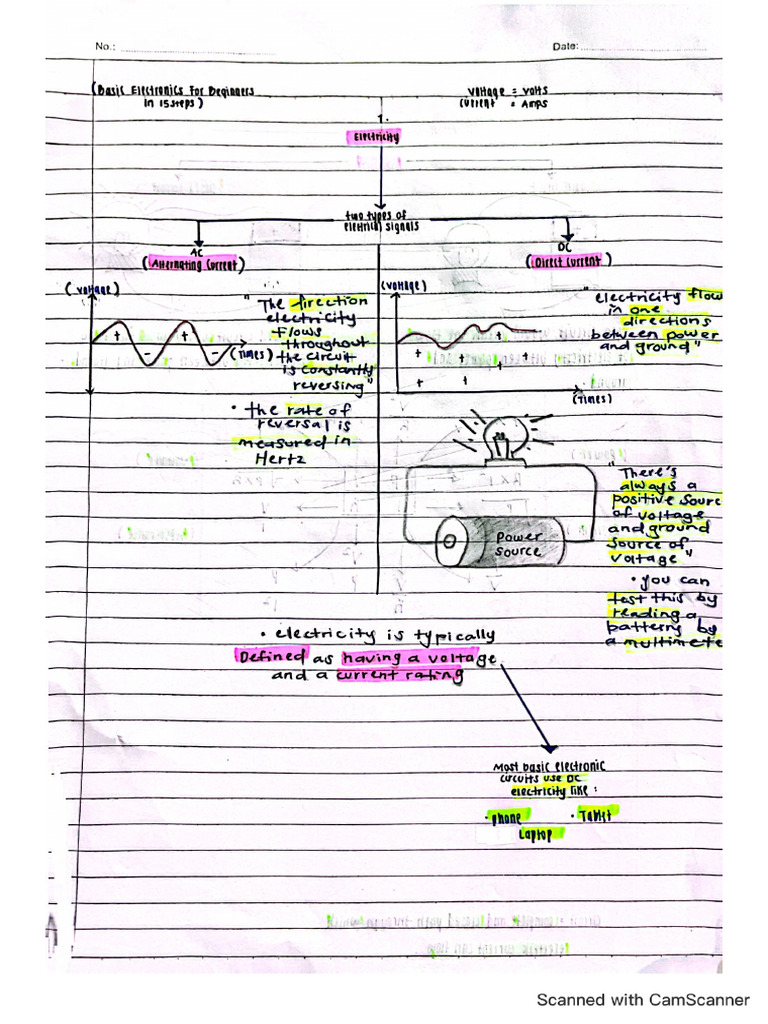 No.:
Date:
(Basic Electronics For Beginners
in 15 steps)
Voltage = Volts
Current = Amps
1.
Electricity
two types of
electrical signals
AC
(Alternating Current)
DC
(Direct Current)
(voltage)
(Times)
"The direction
electricity
flows
throughout
the circuit
is constantly
reversing"
• the rate of
reversal is
measured in
Hertz
(voltage)
(Times)
"electricity flow
in one
directions
between power
and ground"
Power
Source
"There's
always a
positive sourc
of voltage
and ground
source of
voltage"
• you can
test this by
reading a
by
a multimete
• electricity is typically
Defined as having a voltage
and a current rating
Most basic electronic
circuits use DC
electricity like:
• phone
• Tablet
Laptop
Scanned with CamScanner